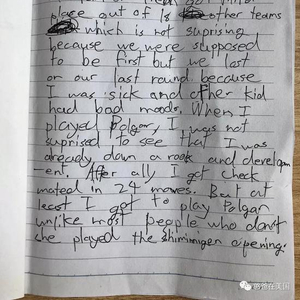 place out of 18 other teams
which is not suprising
because we were supposed
to be first but we lost
on our last round because
I was sick and other kid
had bad moods. When I
played Polgar, I was not
suprised to see that I was
already down a rook and developm
-ent. After all I got check
mated in 24 moves. But at
least I got to play Polgar
unlike most people who don't
she played the shiminigen opening.